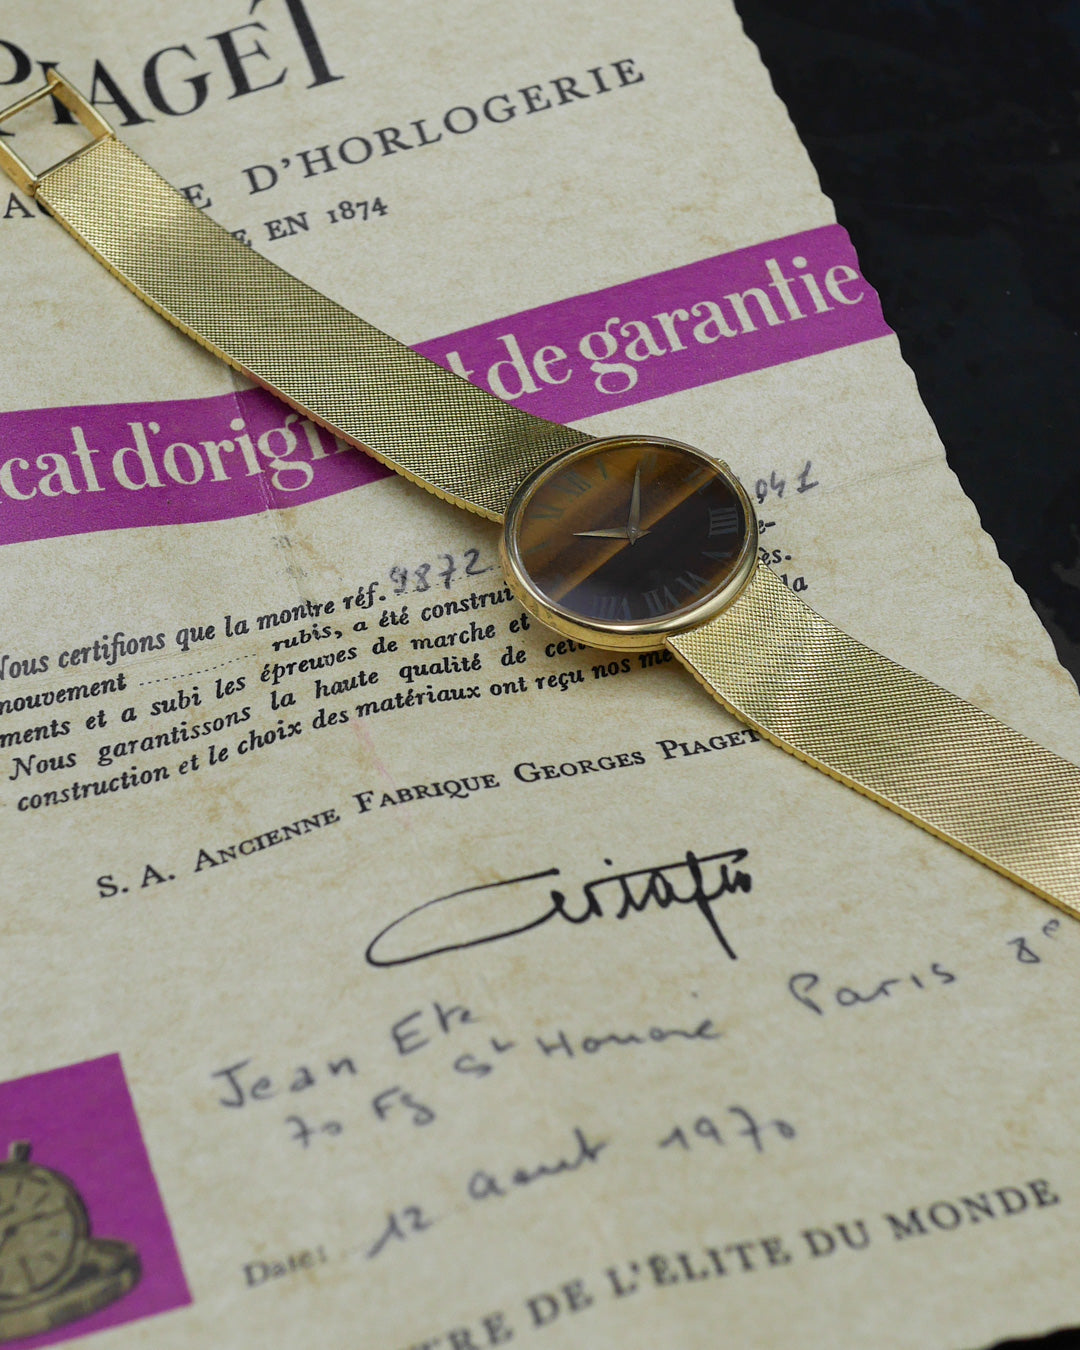 PIAGET
E D'HORLOGERIE
E EN 1874
cat d'origin t de garantie
Nous certifions que la montre réf. 9872 041
mouvement ............ rubis, a été construi e-
ments et a subi les épreuves de marche et ès.
Nous garantissons la haute qualité de cet la
construction et le choix des matériaux ont reçu nos me
S. A. ANCIENNE FABRIQUE GEORGES PIAGET
Jean Ete
70 Fg St Honoré Paris 8e
Date: 12 Aout 1970
TRE DE L'ÉLITE DU MONDE
XII
III
V
VI
VII
VIII